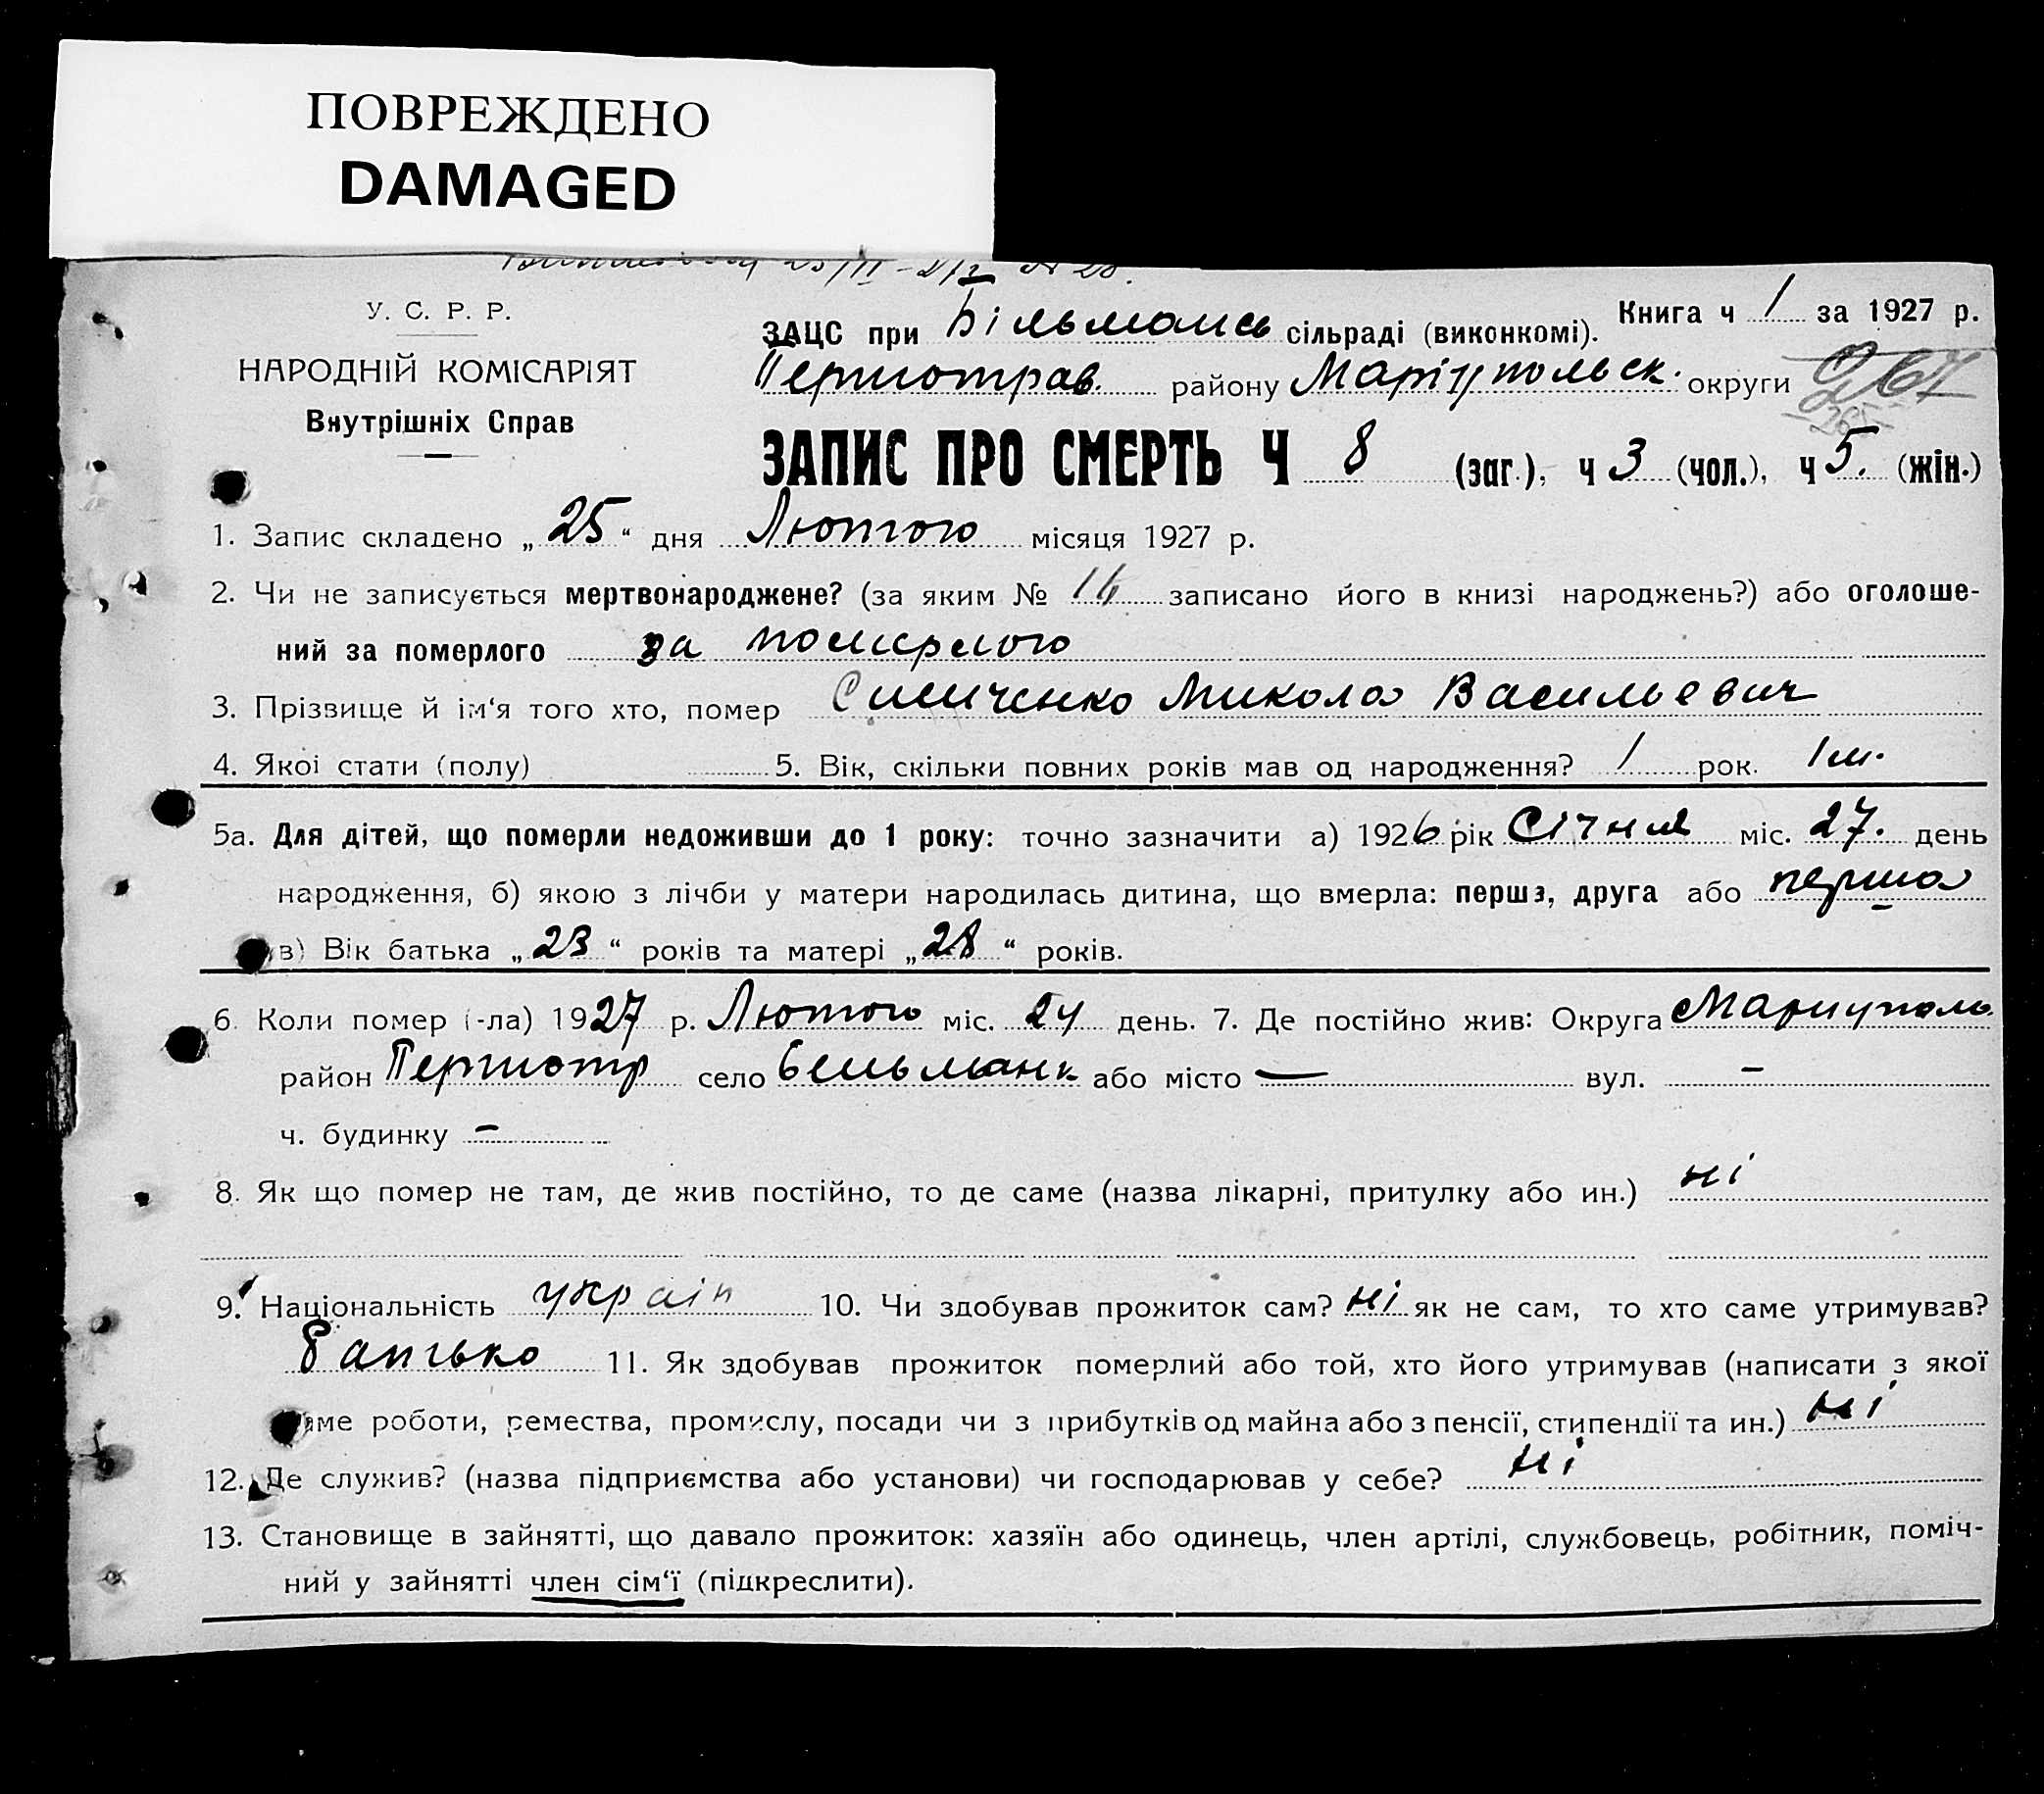 ПОВРЕЖДЕНО
DAMAGED
У. С. Р. Р.
НАРОДНІЙ КОМІСАРІЯТ
Внутрішніх Справ
Книга ч 1 за 1927 р.
ЗАЦС при Більмансь сільраді (виконкомі).
Першотрав. району Маріупольск. округи 267
ЗАПИС ПРО СМЕРТЬ Ч 8 (заг.), ч 3 (чол.), ч 5. (жін.)
1. Запис складено „25“ дня Лютого місяця 1927 р.
2. Чи не записується мертвонароджене? (за яким № записано його в книзі народжень?) або оголоше-
ний за померлого за помирлого
3. Прізвище й ім‘я того хто, помер Симиченко Микола Васильевич
4. Якоі стати (полу) 5. Вік, скільки повних років мав од народження? 1 рок. 1 м.
5а. Для дітей, що померли недоживши до 1 року: точно зазначити а) 1926 рік Січня міс. 27. день
народження, б) якою з лічби у матери народилась дитина, що вмерла: перша, друга або перша
в) Вік батька „23“ років та матері „28“ років.
6. Коли помер (-ла) 1927 р. Лютого міс. 24 день. 7. Де постійно жив: Округа Мариуполь
район Першотр село Бельманк або місто — вул. –
ч. будинку –
8. Як що помер не там, де жив постійно, то де саме (назва лікарні, притулку або ин.) ні
9. Національність україн 10. Чи здобував прожиток сам? ні як не сам, то хто саме утримував?
батько 11. Як здобував прожиток померлий або той, хто його утримував (написати з якої
аме роботи, ремества, промислу, посади чи з прибутків од майна або з пенсії, стипендії та ин.) ні
12. Де служив? (назва підприємства або установи) чи господарював у себе? ні
13. Становище в зайнятті, що давало прожиток: хазяїн або одинець, член артілі, службовець, робітник, поміч-
ний у зайнятті член сім‘ї (підкреслити).